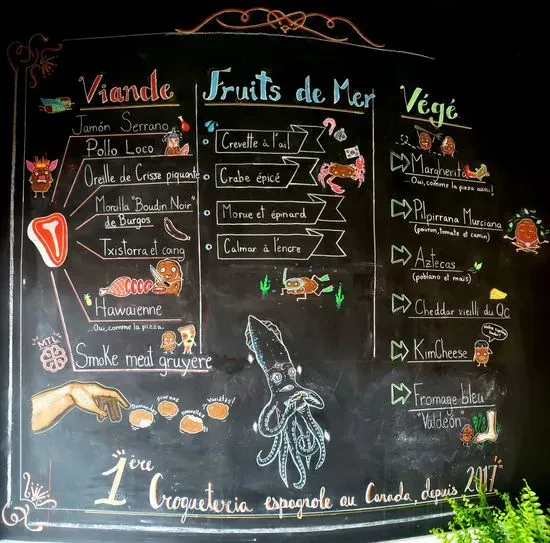 Viande
Jamón Serrano
Pollo Loco
Oreille de Crisse piquante
Morcilla "Boudin Noir"
de Burgos
Txistorra et coing
Hawaïenne
...Oui, comme la pizza.
MTL
Smoke meat gruyère
Fruits de Mer
Crevette à l'ail
Crabe épicé
Morue et épinard
Calmar à l'encre
Végé
Margherita
Oui, comme la pizza aussi!
Pipirrana Murciana
(poivron, tomate et cumin)
Aztecas
(poblano et maïs)
Cheddar vieilli du QC
KimCheese
Fromage bleu
"Valdeón"
Demandez
pour nos
nouvelles
variétés!
1ère Croqueteria espagnole au Canada, depuis 2017